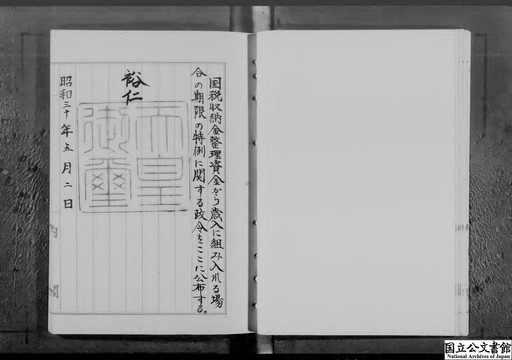 国税収納金整理資金から歳入に組み入れる場
合の期限の特例に関する政令をここに公布する。
裕仁
天皇
御璽
昭和三十年五月二日
国立公文書館
National Archives of Japan